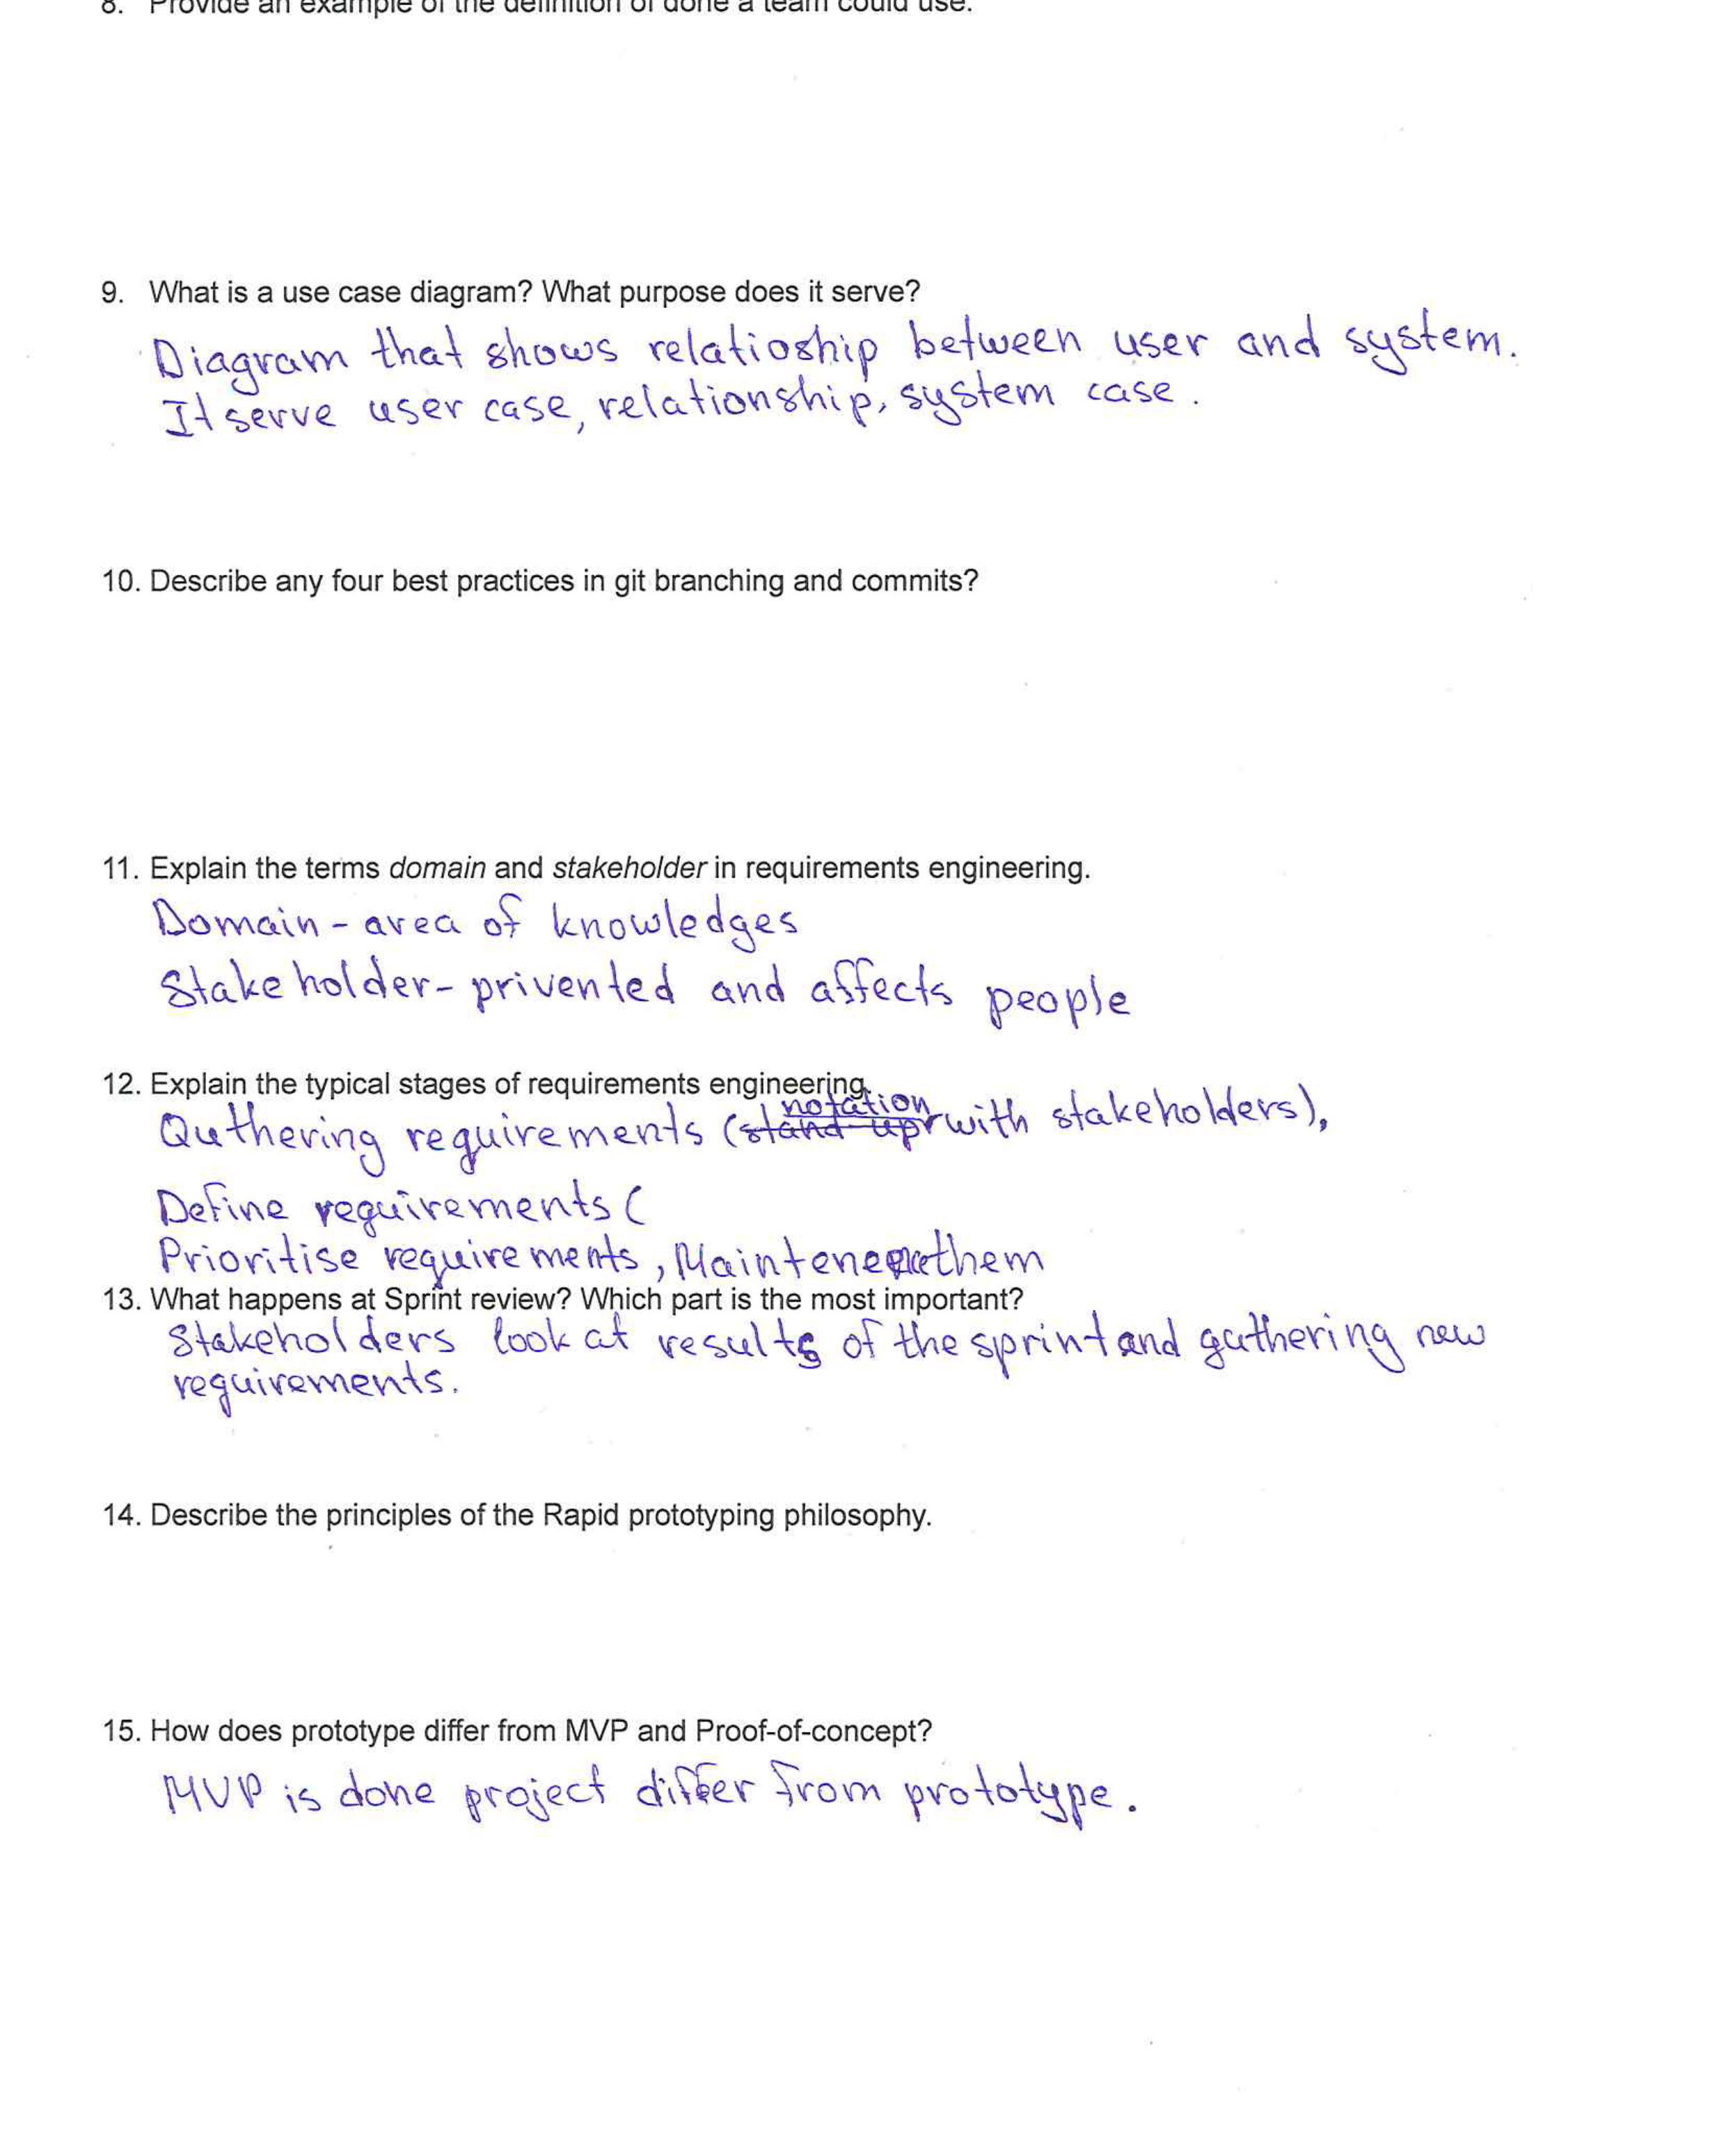 8. Provide an example of the definition of done a team could use.
9. What is a use case diagram? What purpose does it serve?
Diagram that shows relatioship between user and system.
It serve user case, relationship, system case.
10. Describe any four best practices in git branching and commits?
11. Explain the terms domain and stakeholder in requirements engineering.
Domain - area of knowledges
Stakeholder - privented and affects people
12. Explain the typical stages of requirements engineering.
notation
Guthering requirements (stand-up with stakeholders),
Define requirements (
Prioritise requirements, them
13. What happens at Sprint review? Which part is the most important?
Stakeholders look at results of the sprint and guthering new
requirements.
14. Describe the principles of the Rapid prototyping philosophy.
15. How does prototype differ from MVP and Proof-of-concept?
MVP is done project differ from prototype.